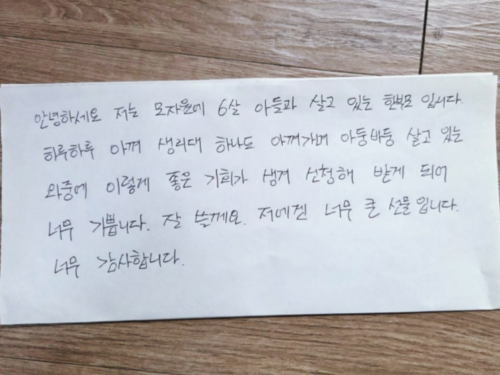 안녕하세요 저는 모자원에 6살 아들과 살고 있는 한부모 입니다.
하루하루 아껴 생리대 하나도 아껴가며 아둥바둥 살고 있는
와중에 이렇게 좋은 기회가 생겨 신청해 받게 되어
너무 기쁩니다. 잘 쓸께요. 저에겐 너무 큰 선물입니다.
너무 감사합니다.